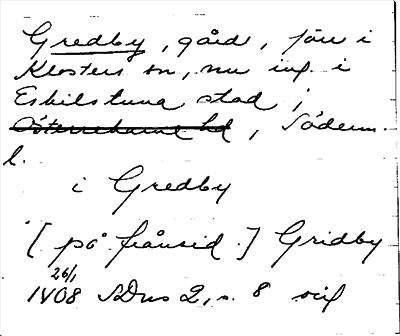 Gredby, gård, förr i
Klosters sn, nu inf. i
Eskilstuna stad,
Österrekarne hd, Söderm.
l.
i Gredby
[på frånsid.] Gridby
26/1
1408 SDns 2, s. 8 orig